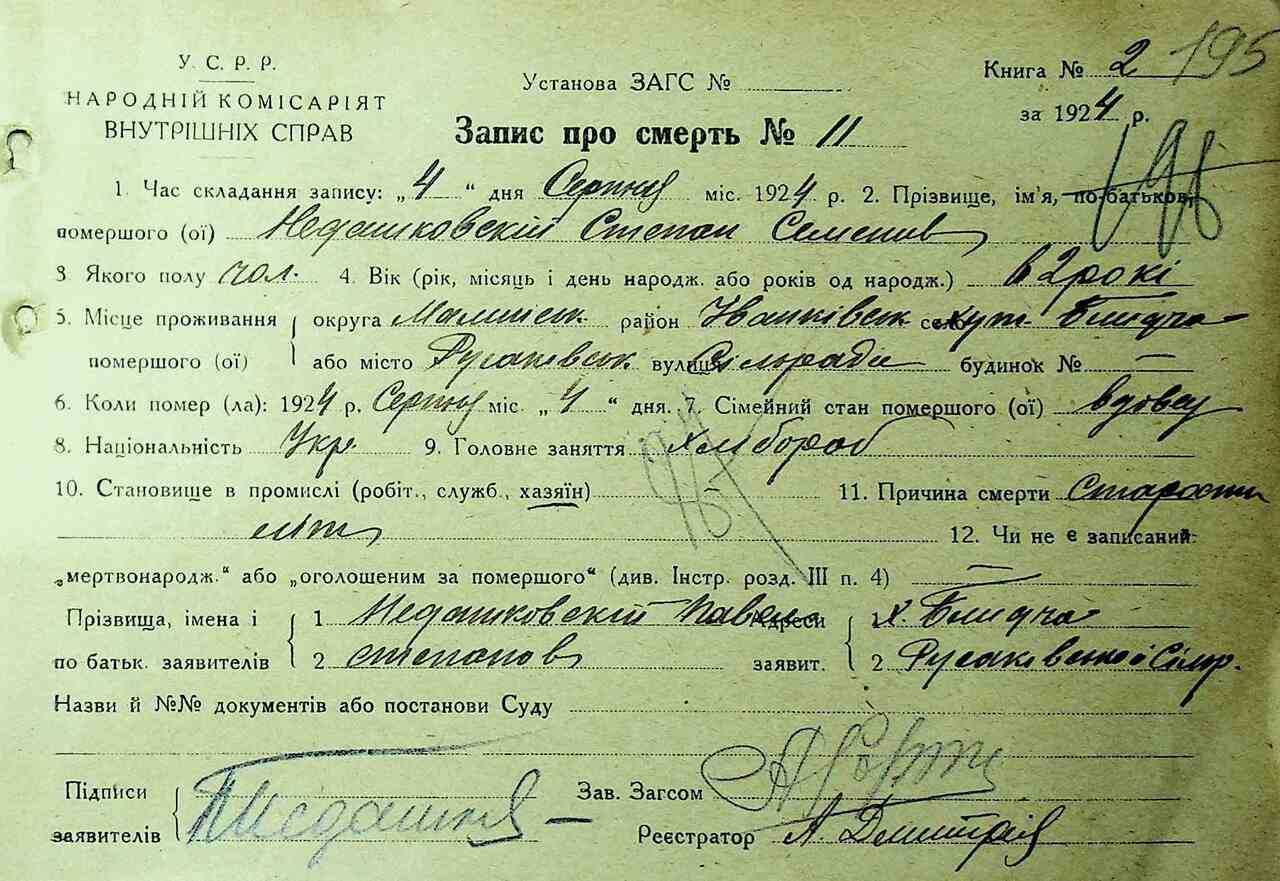 У. С. Р. Р.
НАРОДНІЙ КОМІСАРІЯТ
ВНУТРІШНІХ СПРАВ
Установа ЗАГС №
Книга № 2 195
за 1924 р.
Запис про смерть № 11
196
1. Час складання запису: „4“ дня Серпня міс. 1924 р. 2. Прізвище, ім'я, по-батьков,
помершого (ої) Недашковскій Степан Семенив
3. Якого полу чол. 4. Вік (рік, місяць і день народж. або років од народж.)
5. Місце проживання помершого (ої) округа Малинськ район Иванківськ село хут. Блидча
або місто Русаківськ вулиця Сільради будинок № —
6. Коли помер (ла): 1924 р. Серпня міс. „4“ дня. 7. Сімейний стан помершого (ої) вдовец
8. Національність Укр. 9. Головне заняття Хлібороб
10. Становище в промислі (робіт., служб., хазяїн) — 11. Причина смерти Старости
літ 12. Чи не є записаний
„мертвонародж.“ або „оголошеним за помершого“ (див. Інстр. розд. III п. 4) —
Прізвища, імена і 1 Недашковскій Павел Адреси 1 х. Блидча
по батьк. заявителів 2 Степанов заявит. 2 Русаківської Сілр.
Назви й №№ документів або постанови Суду
Підписи заявителів П Недашк
Зав. Загсом
Реєстратор А. Дмитрів